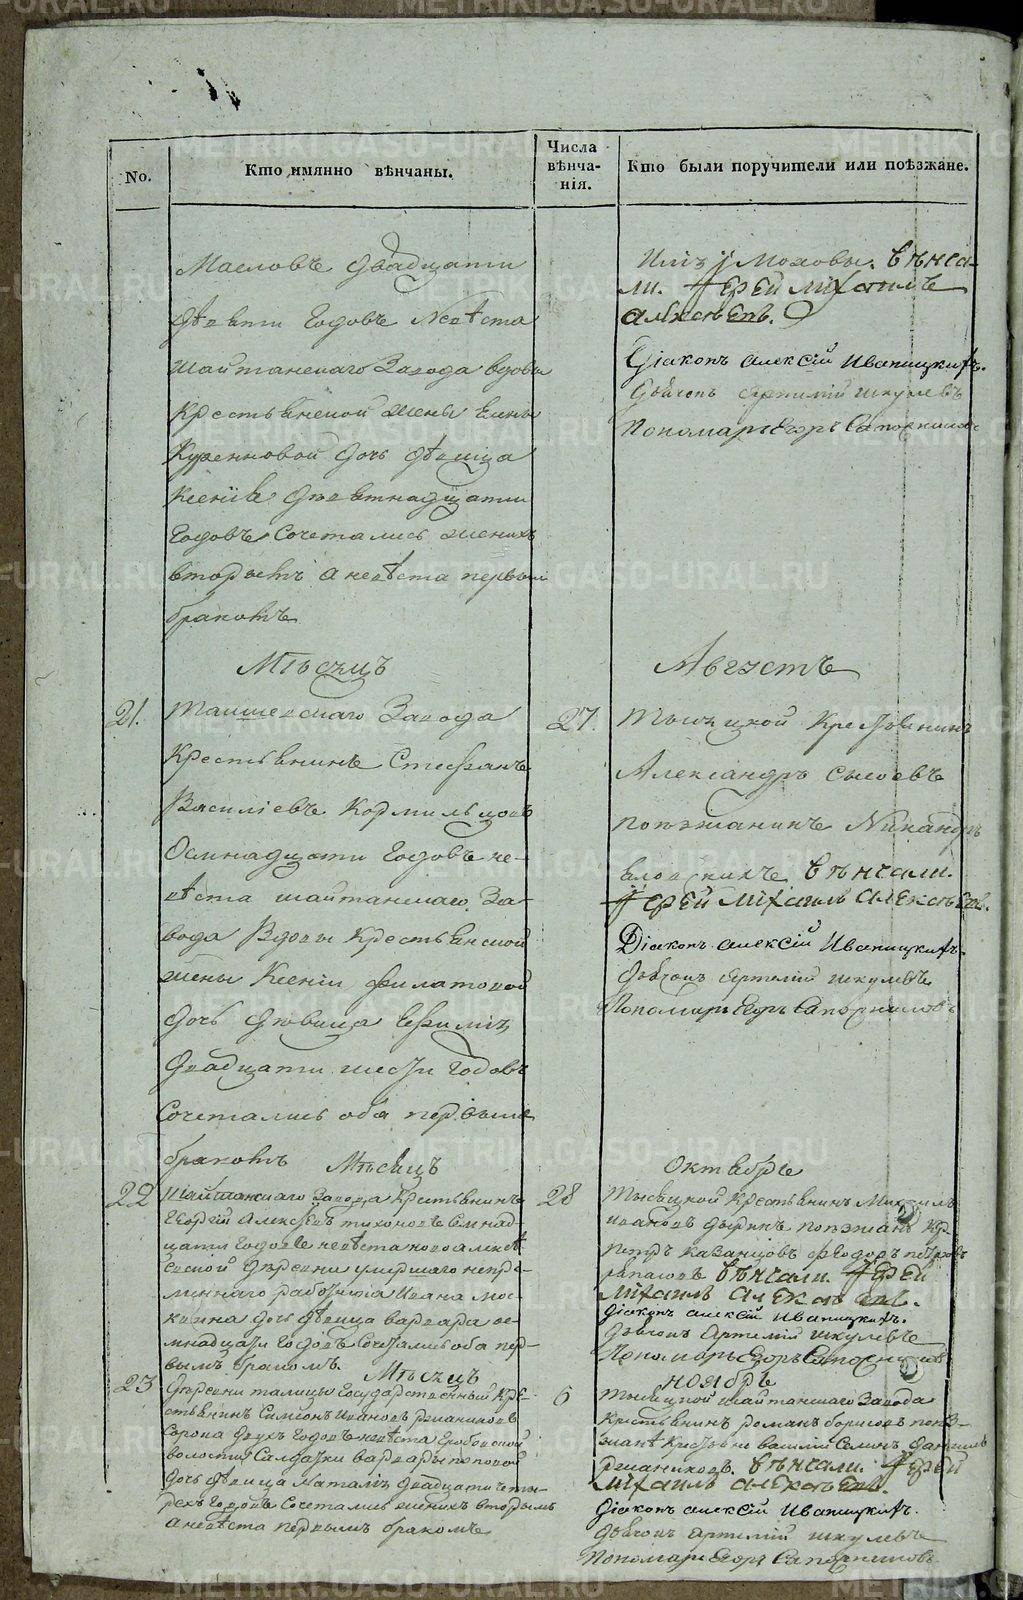 No.
Кто имянно вѣнчаны.
Числа
вѣнча-
нія.
Кто были поручители или поѣзжане.
Масловъ двадцати
девяти годовъ невѣста
шайтанскаго Завода вдовы
Крестьянской жены Елены
дочь дѣвица
Ксенія девятнадцати
годовъ сочетались женихъ
вторымъ а невѣста первымъ
бракомъ
Моховы. вѣнча-
ли. Іерей Михаилъ
Алексѣевъ.
Діаконъ Алексій Иваницкихъ.
Дьячокъ Артемій Шкулевъ
Пономарь Егоръ Сапожниковъ
Мѣсяцъ
Августъ
21.
Завода
Крестьянинъ Стефанъ
Василіевъ Кормильцовъ
Осмнадцати годовъ не-
вѣста шайтанскаго За-
вода Вдовы Крестьянской
жены Ксеніи Филатовой
дочь дѣвица Ефимія
двадцати шести годовъ
Сочетались оба первымъ
бракомъ
27.
Тысяцкой Крестьянинъ
Александръ Сысоевъ
поезжанинъ Никандръ
вѣнчали.
Іерей Михаилъ Алексѣевъ.
Діаконъ Алексій Иваницкихъ.
Дьячокъ Артемій Шкулевъ
Пономарь Егоръ Сапожниковъ
Мѣсяцъ
Октябрь
22
Шайтанскаго Завода Крестьянинъ
Георгій Алексѣевъ Тихоновъ семнад-
цати годовъ невѣста новоалексѣ
евской деревни умершаго непре-
меннаго работника Ивана Мос-
квина дочь дѣвица варвара ос-
мнадцати годовъ Сочетались оба пер-
вымъ бракомъ.
28
Тысяцкой Крестьянинъ Михаилъ
Ивановъ поезжана кр.
петръ Казанцовъ Феодоръ петровъ
вѣнчали. Іерей
Михаилъ Алексѣевъ.
Діаконъ Алексій Иваницкихъ.
Дьячокъ Артемій Шкулевъ
Пономарь Егоръ Сапожниковъ
Мѣсяцъ
Ноябрь
23
Деревни талицы Государственный Кре-
стьянинъ Симеонъ Ивановъ
Сорока двухъ годовъ невѣста
волости Салдатки варвары поповой
дочь дѣвица Наталія двадцати четы-
рехъ годовъ Сочетались женихъ вторымъ
а невѣста первымъ бракомъ
6
Тысяцкой шайтанскаго Завода
Крестьянинъ романъ борисовъ поез-
жанѣ Крестьяне василій Данилъ
вѣнчали. Іерей
Михаилъ Алексѣевъ.
Діаконъ Алексій Иваницкихъ.
Дьячокъ Артемій Шкулевъ
Пономарь Егоръ Сапожниковъ
METRIKI.GASO-URAL.RU